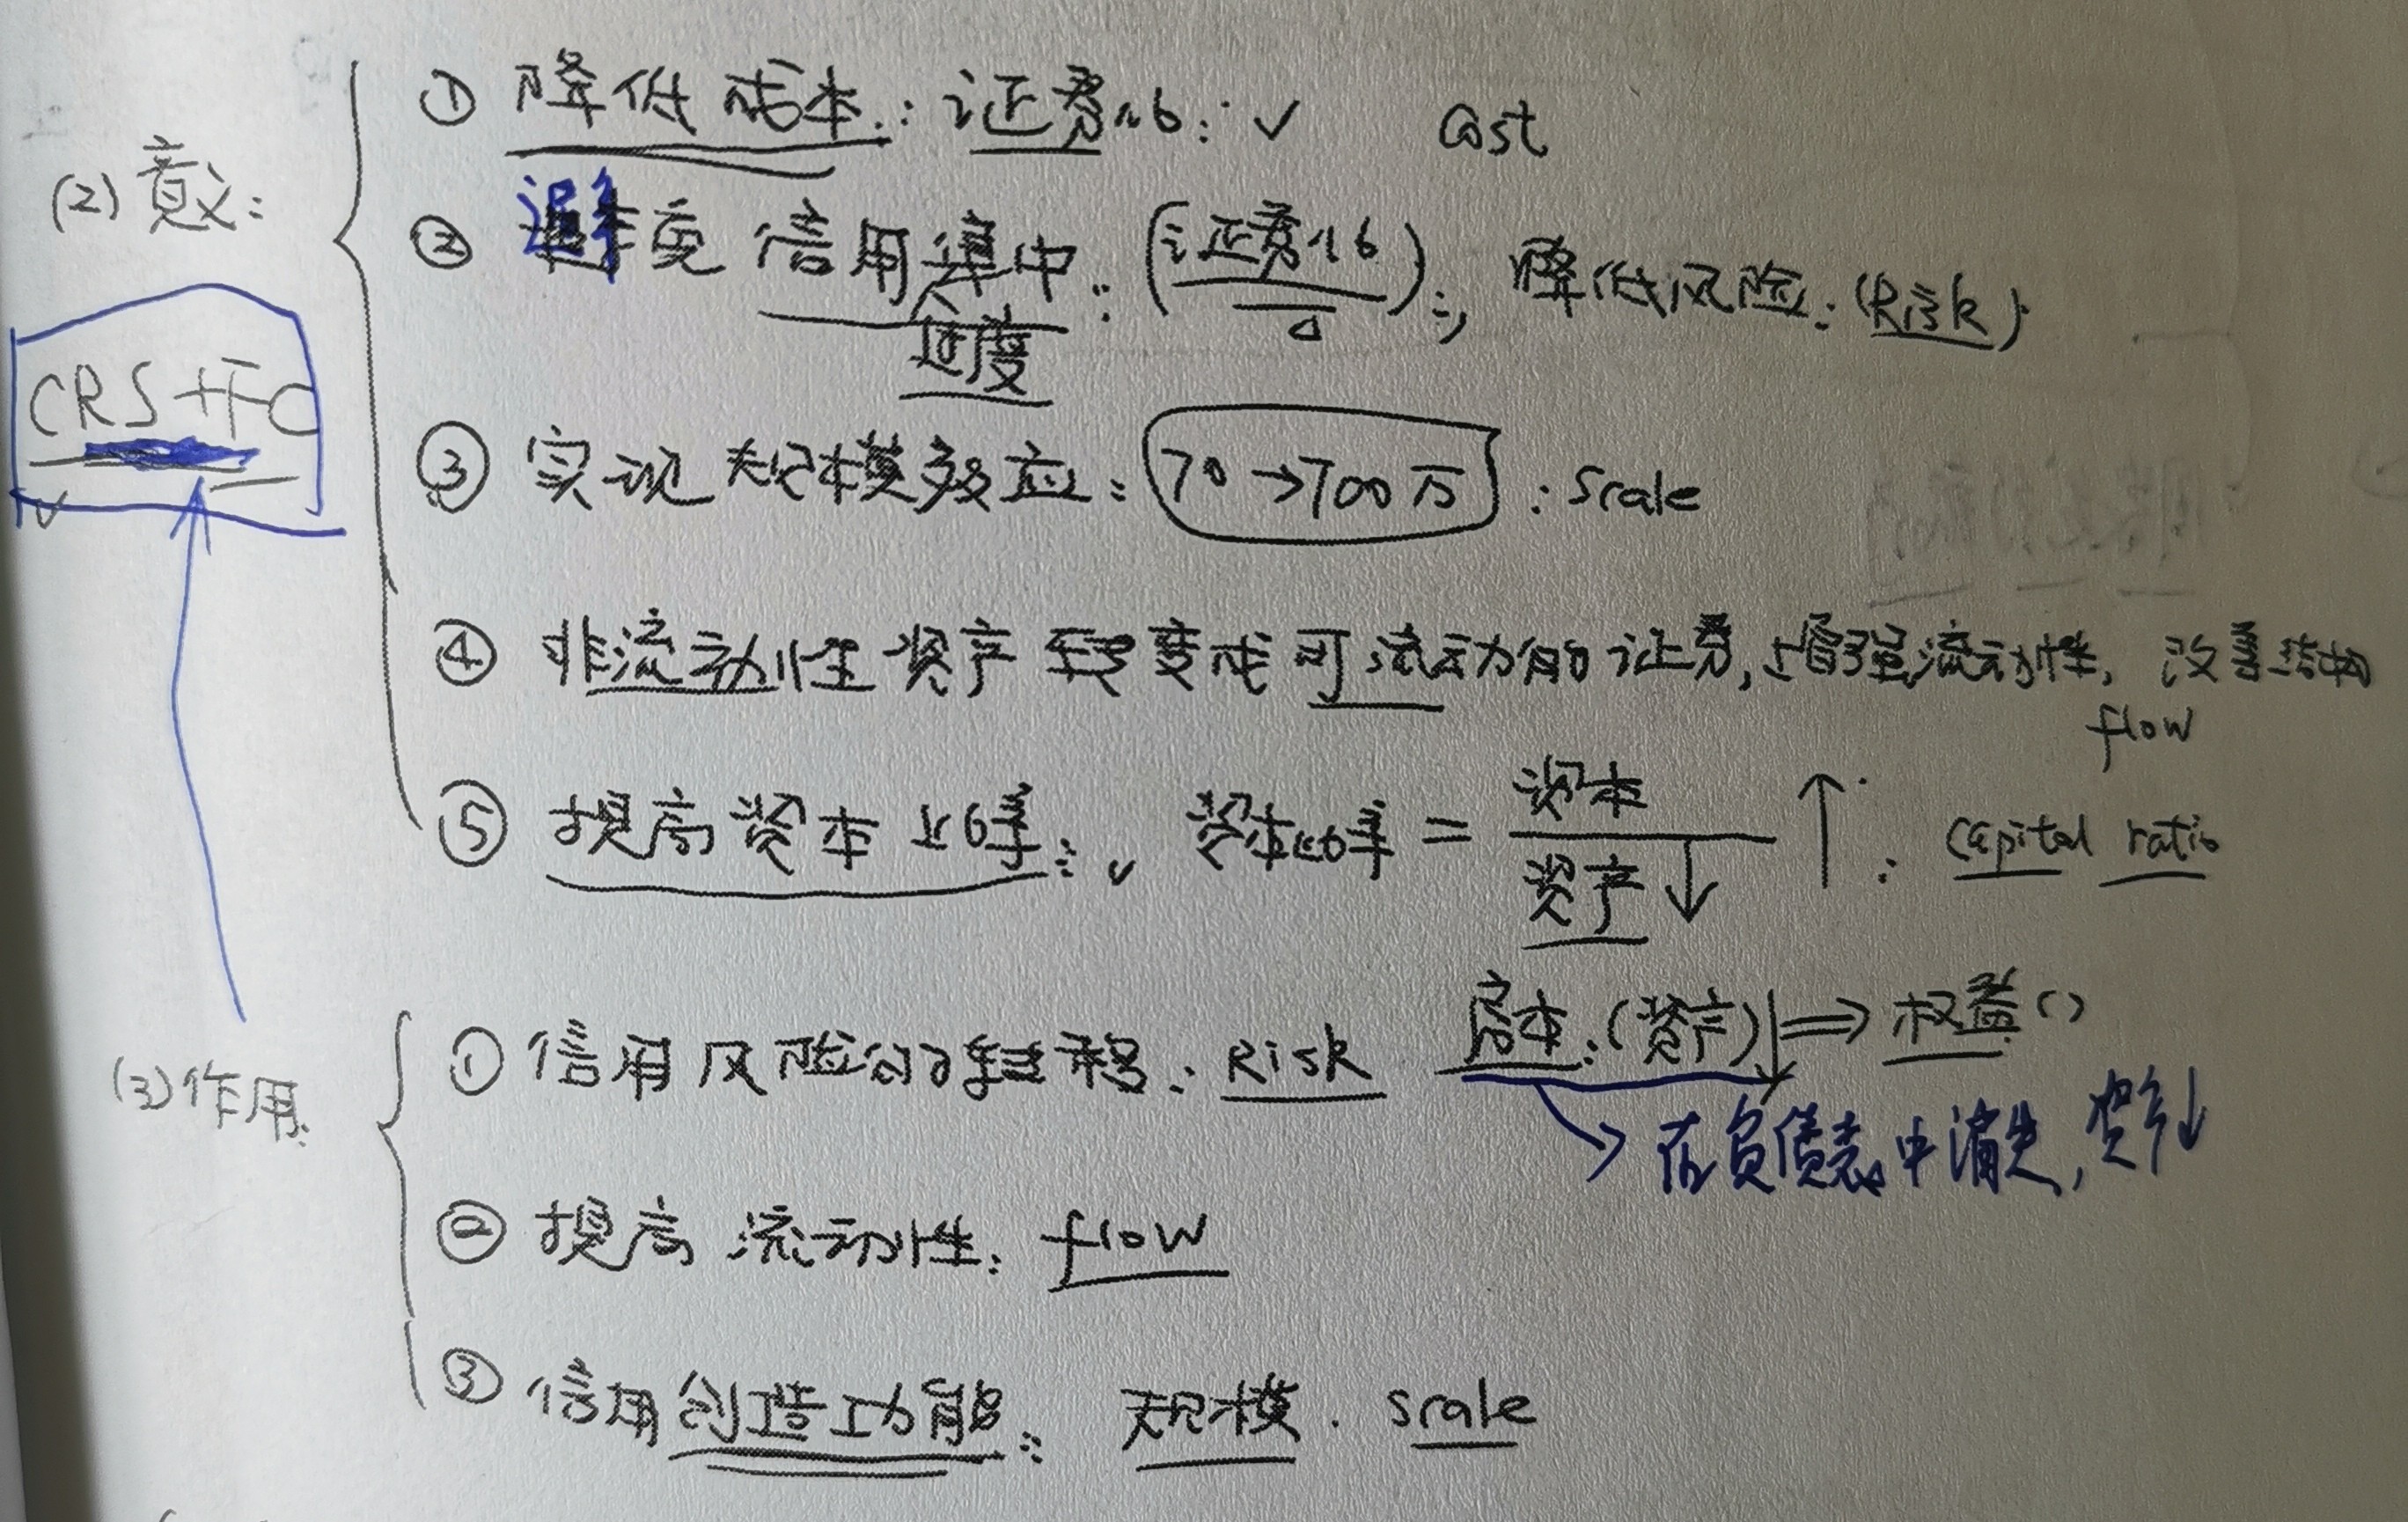 (2) 意义:
① 降低成本: 证券化: ✓ Cost
② 避免信用集中: (证券化); 降低风险: (Risk)
过度
CRS+FC
③ 实现规模效应: 70→700万: Scale
④ 非流动性资产转变成可流动的证券, 增强流动性, 改善结构
flow
⑤ 提高资本比率: ✓ 资本比率 = 资本/资产↓ ↑: Capital ratio
(3) 作用
① 信用风险的转移: Risk 成本: (资产)↓ ⇒ 权益()
→ 在负债表中消失, 资产↓
② 提高流动性: flow
③ 信用创造功能: 规模. Scale